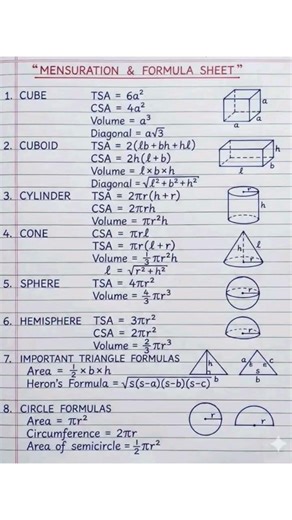 "MENSURATION & FORMULA SHEET"
1. CUBE TSA = 6a²
CSA = 4a²
Volume = a³
Diagonal = a√3
a
a
a
2. CUBOID TSA = 2(ℓb + bh + hℓ)
CSA = 2h(ℓ + b)
Volume = ℓ × b × h
Diagonal = √ℓ² + b² + h²
h
b
ℓ
3. CYLINDER TSA = 2πr(h + r)
CSA = 2πrh
Volume = πr²h
r
h
4. CONE CSA = πrℓ
TSA = πr(ℓ + r)
Volume = 1/3 πr²h
ℓ = √r² + h²
h
ℓ
r
5. SPHERE TSA = 4πr²
Volume = 4/3 πr³
r
6. HEMISPHERE TSA = 3πr²
CSA = 2πr²
Volume = 2/3 πr³
r
7. IMPORTANT TRIANGLE FORMULAS
Area = 1/2 × b × h
Heron's Formula = √s(s-a)(s-b)(s-c)
h
b
b
a
c
s
b
8. CIRCLE FORMULAS
Area = πr²
Circumference = 2πr
Area of semicircle = 1/2 πr²
r
r